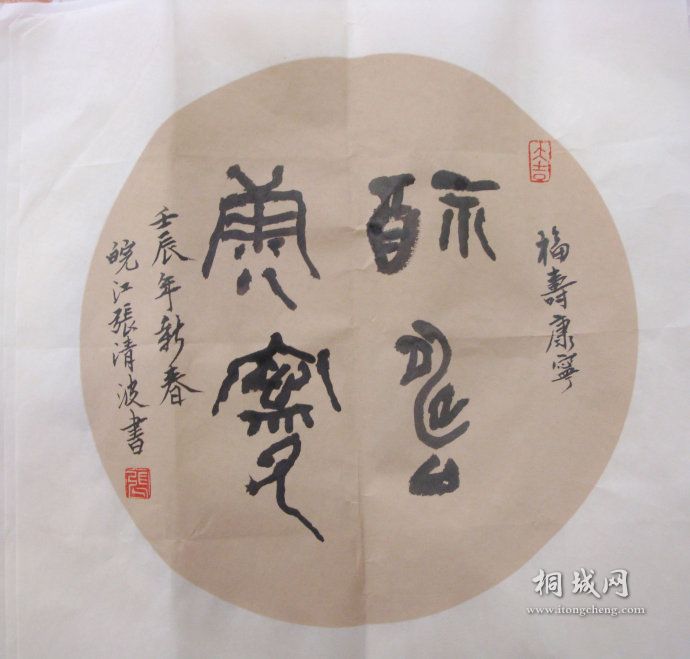 大吉
福壽康寧
福壽
康寧
壬辰年新春
皖江張清波書
張
桐城网
www.itongcheng.com